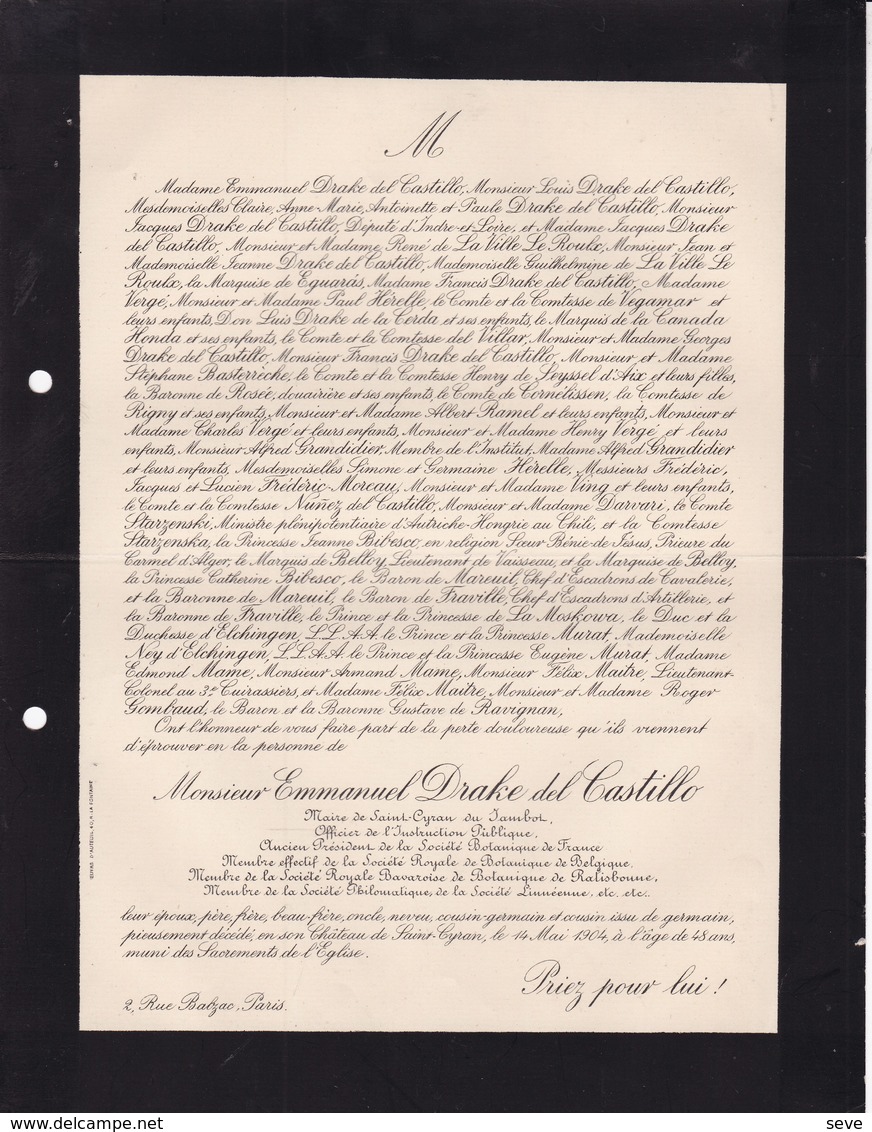 M
Madame Emmanuel Drake del Castillo, Monsieur Louis Drake del Castillo,
Mesdemoiselles Claire, Anne-Marie, Antoinette et Paule Drake del Castillo, Monsieur
Jacques Drake del Castillo, Député d'Indre-et-Loire, et Madame Jacques Drake
del Castillo, Monsieur et Madame René de La Ville Le Roulx, Monsieur Jean et
Mademoiselle Jeanne Drake del Castillo, Mademoiselle Guilhelmine de La Ville Le
Roulx, la Marquise de Eguaras, Madame Francis Drake del Castillo, Madame
Vergé, Monsieur et Madame Paul Hérelle, le Comte et la Comtesse de Vegamar et
leurs enfants, Don Luis Drake de la Cerda et ses enfants, le Marquis de la Canada
Honda et ses enfants, le Comte et la Comtesse del Villar, Monsieur et Madame Georges
Drake del Castillo, Monsieur Francis Drake del Castillo, Monsieur et Madame
Stéphane Basterrèche, le Comte et la Comtesse Henry de Seyssel d'Aix et leurs filles,
la Baronne de Rosée, douairière et ses enfants, le Comte de Cornélissen, la Comtesse de
Rigny et ses enfants, Monsieur et Madame Albert Ramel et leurs enfants, Monsieur et
Madame Charles Vergé et leurs enfants, Monsieur et Madame Henry Vergé et leurs
enfants, Monsieur Alfred Grandidier, Membre de l'Institut, Madame Alfred Grandidier
et leurs enfants, Mesdemoiselles Simone et Germaine Hérelle, Messieurs Frédéric,
Jacques et Lucien Frédéric-Moreau, Monsieur et Madame Ving et leurs enfants,
le Comte et la Comtesse Nuñez del Castillo, Monsieur et Madame Darvari, le Comte
Starzenski, Ministre plénipotentiaire d'Autriche-Hongrie au Chili, et la Comtesse
Starzenska, la Princesse Jeanne Bibesco, en religion Sœur Bénie-de-Jésus, Prieure du
Carmel d'Alger, le Marquis de Belloy, Lieutenant de Vaisseau, et la Marquise de Belloy,
la Princesse Catherine Bibesco, le Baron de Mareuil, Chef d'Escadrons de Cavalerie,
et la Baronne de Mareuil, le Baron de Fraville, Chef d'Escadrons d'Artillerie, et
la Baronne de Fraville, le Prince et la Princesse de La Moskowa, le Duc et la
Duchesse d'Elchingen, L.L.A.A. le Prince et la Princesse Murat, Mademoiselle
Ney d'Elchingen, L.L.A.A. le Prince et la Princesse Eugène Murat, Madame
Edmond Mame, Monsieur Armand Mame, Monsieur Félix Maitre, Lieutenant-
Colonel au 3e Cuirassiers, et Madame Félix Maitre, Monsieur et Madame Roger
Gombaud, le Baron et la Baronne Gustave de Ravignan,
Ont l'honneur de vous faire part de la perte douloureuse qu'ils viennent
d'éprouver en la personne de
Monsieur Emmanuel Drake del Castillo
Maire de Saint-Cyran du Jambot,
Officier de l'Instruction Publique,
Ancien Président de la Société Botanique de France
Membre effectif de la Société Royale de Botanique de Belgique,
Membre de la Société Royale Bavaroise de Botanique de Ratisbonne,
Membre de la Société Philomatique, de la Société Linnéenne, etc. etc.
leur époux, père, frère, beau-frère, oncle, neveu, cousin-germain et cousin issu de germain,
pieusement décédé, en son Château de Saint-Cyran, le 14 Mai 1904, à l'âge de 48 ans,
muni des Sacrements de l'Eglise.
Priez pour lui !
2, Rue Balzac, Paris.
D'AUTEUIL, 40, R. LA FONTAINE
seve